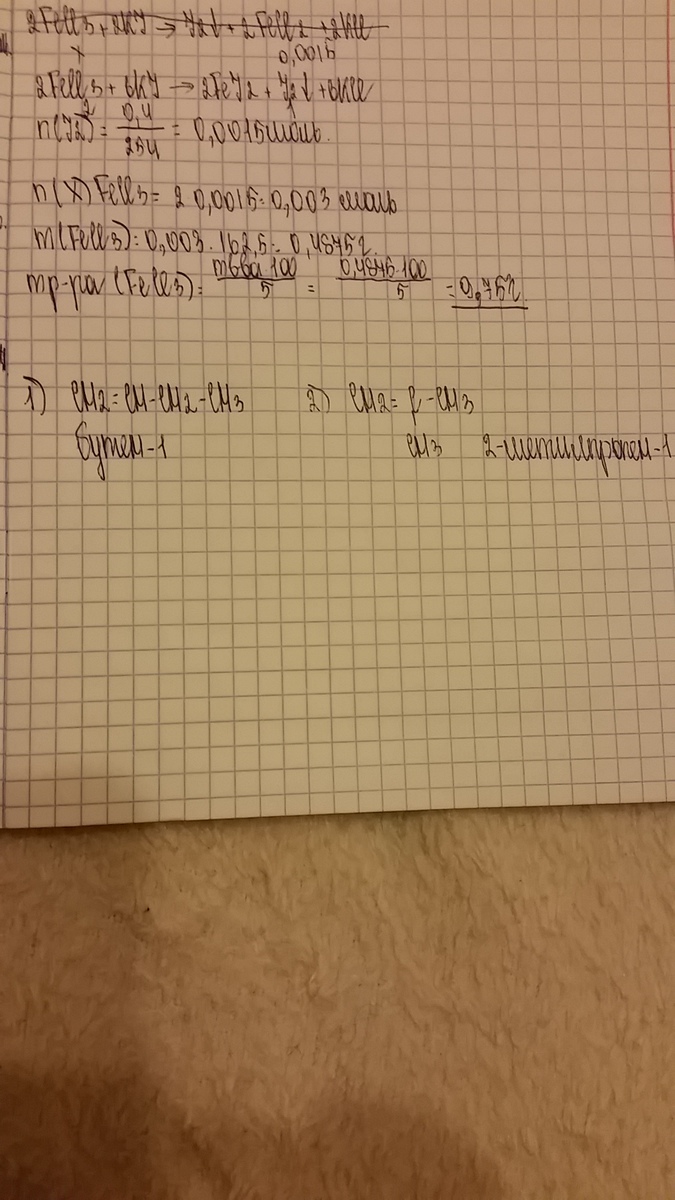 2FeCl3 + 2KJ → J2↓ + 2FeCl2 + 2KCl
x 0,0015
2FeCl3 + 6KJ → 2FeJ2 + J2↓ + 6KCl
2 1
n(J2) = 0,4/254 = 0,0015моль.
n(x)FeCl3 = 2 0,0015 = 0,003 моль
m(FeCl3) = 0,003 · 162,5 = 0,4875г.
mр-ра (FeCl3) = mв-ва·100/5 = 0,4875·100/5 = 9,75г
1) CH2=CH-CH2-CH3 2) CH2=C-CH3
бутен-1 CH3 2-метилпропен-1